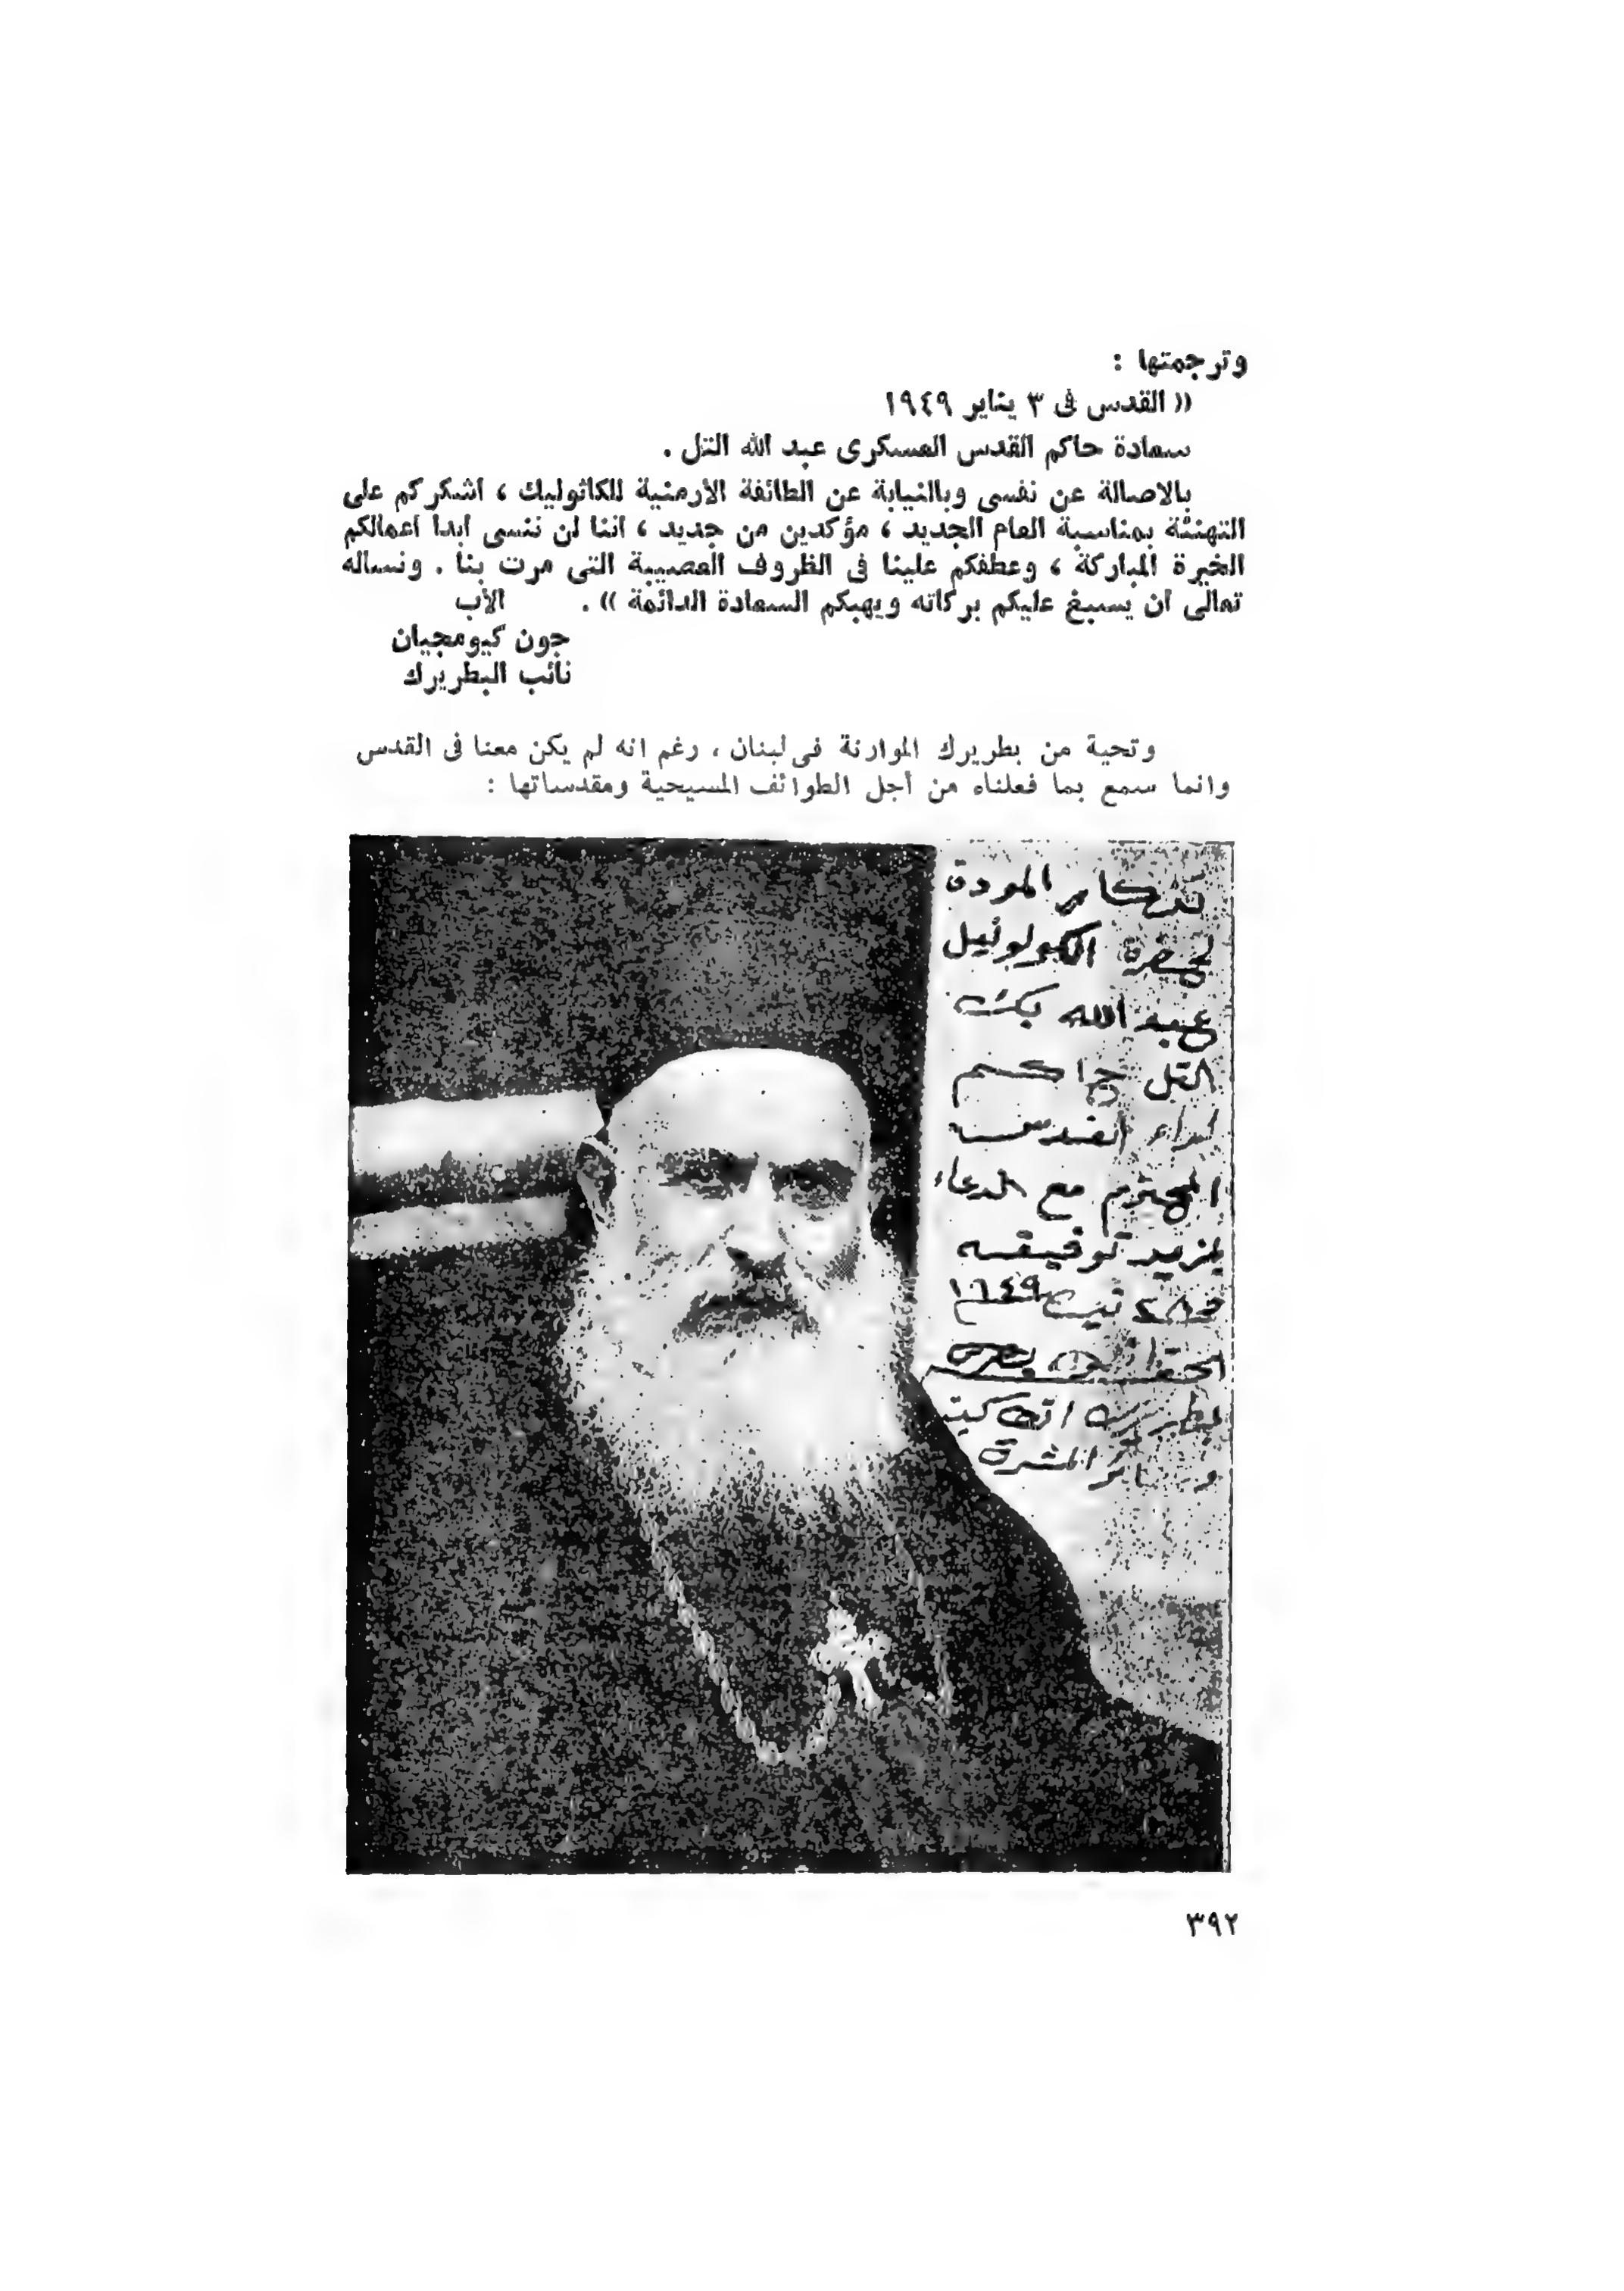 وترجمتها :
« القدس فى ٣ يناير ١٩٤٩
سعادة حاكم القدس العسكرى عبد الله التل .
بالاصالة عن نفسى وبالنيابة عن الطائفة الأرمنية للكاثوليك ، أشكركم على
التهنئة بمناسبة العام الجديد ، مؤكدين من جديد ، اننا لن ننسى أبدا أعمالكم
الخيرة المباركة ، وعطفكم علينا فى الظروف العصيبة التى مرت بنا . ونسأله
تعالى أن يسبغ عليكم بركاته ويهبكم السعادة الدائمة » .
الأب
جون كيومجيان
نائب البطريرك
وتحية من بطريرك الموارنة فى لبنان ، رغم انه لم يكن معنا فى القدس
وانما سمع بما فعلناه من أجل الطوائف المسيحية ومقدساتها :
تذكار المودة
لحضرة الكولونيل
عبد الله بك
التل حاكم
لواء القدس
المحترم مع الدعاء
بمزيد توفيقه
١٩٤٩
الحقير انطون بطرس
بطريرك انطاكية
وسائر المشرق
٣٩٢